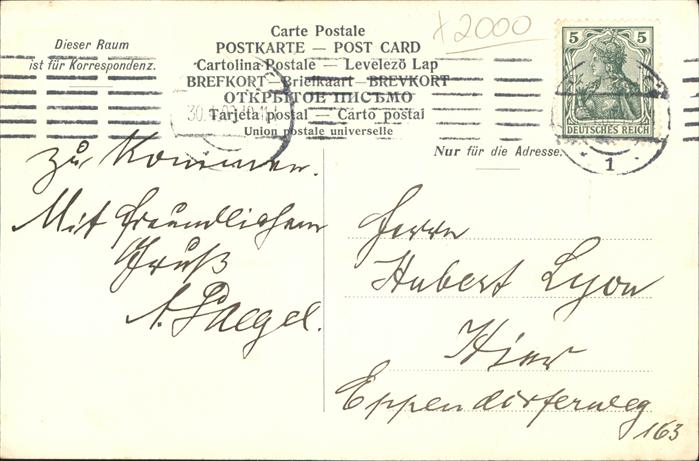 Carte Postale
POSTKARTE — POST CARD
Cartolina Postale — Levelezö Lap
BREFKORT — Briefkaart — BREVKORT
ОТКРЫТОЕ ПИСЬМО
Tarjeta postal — Carto postal
Union postale universelle
x 2000
Dieser Raum
ist für Korrespondenz.
5 5
DEUTSCHES REICH
30.
1
Nur für die Adresse.
zu kommen.
Mit freundlichem
Gruß
A. Paegel.
Herrn
Hubert Lyon
Hier
Eppendorferweg
163